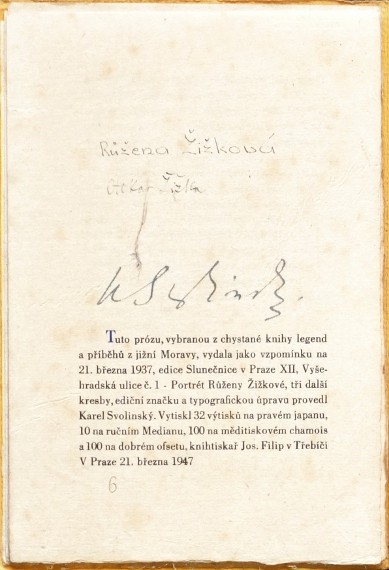 Růžena Žižková
Žižka
K Svolinský.
Tuto prózu, vybranou z chystané knihy legend
a příběhů z jižní Moravy, vydala jako vzpomínku na
21. března 1937, edice Slunečnice v Praze XII, Vyše-
hradská ulice č. 1 - Portrét Růženy Žižkové, tři další
kresby, ediční značku a typografickou úpravu provedl
Karel Svolinský. Vytiskl 32 výtisků na pravém japanu,
10 na ručním Medianu, 100 na měditiskovém chamois
a 100 na dobrém ofsetu, knihtiskař Jos. Filip v Třebíči
V Praze 21. března 1947
6